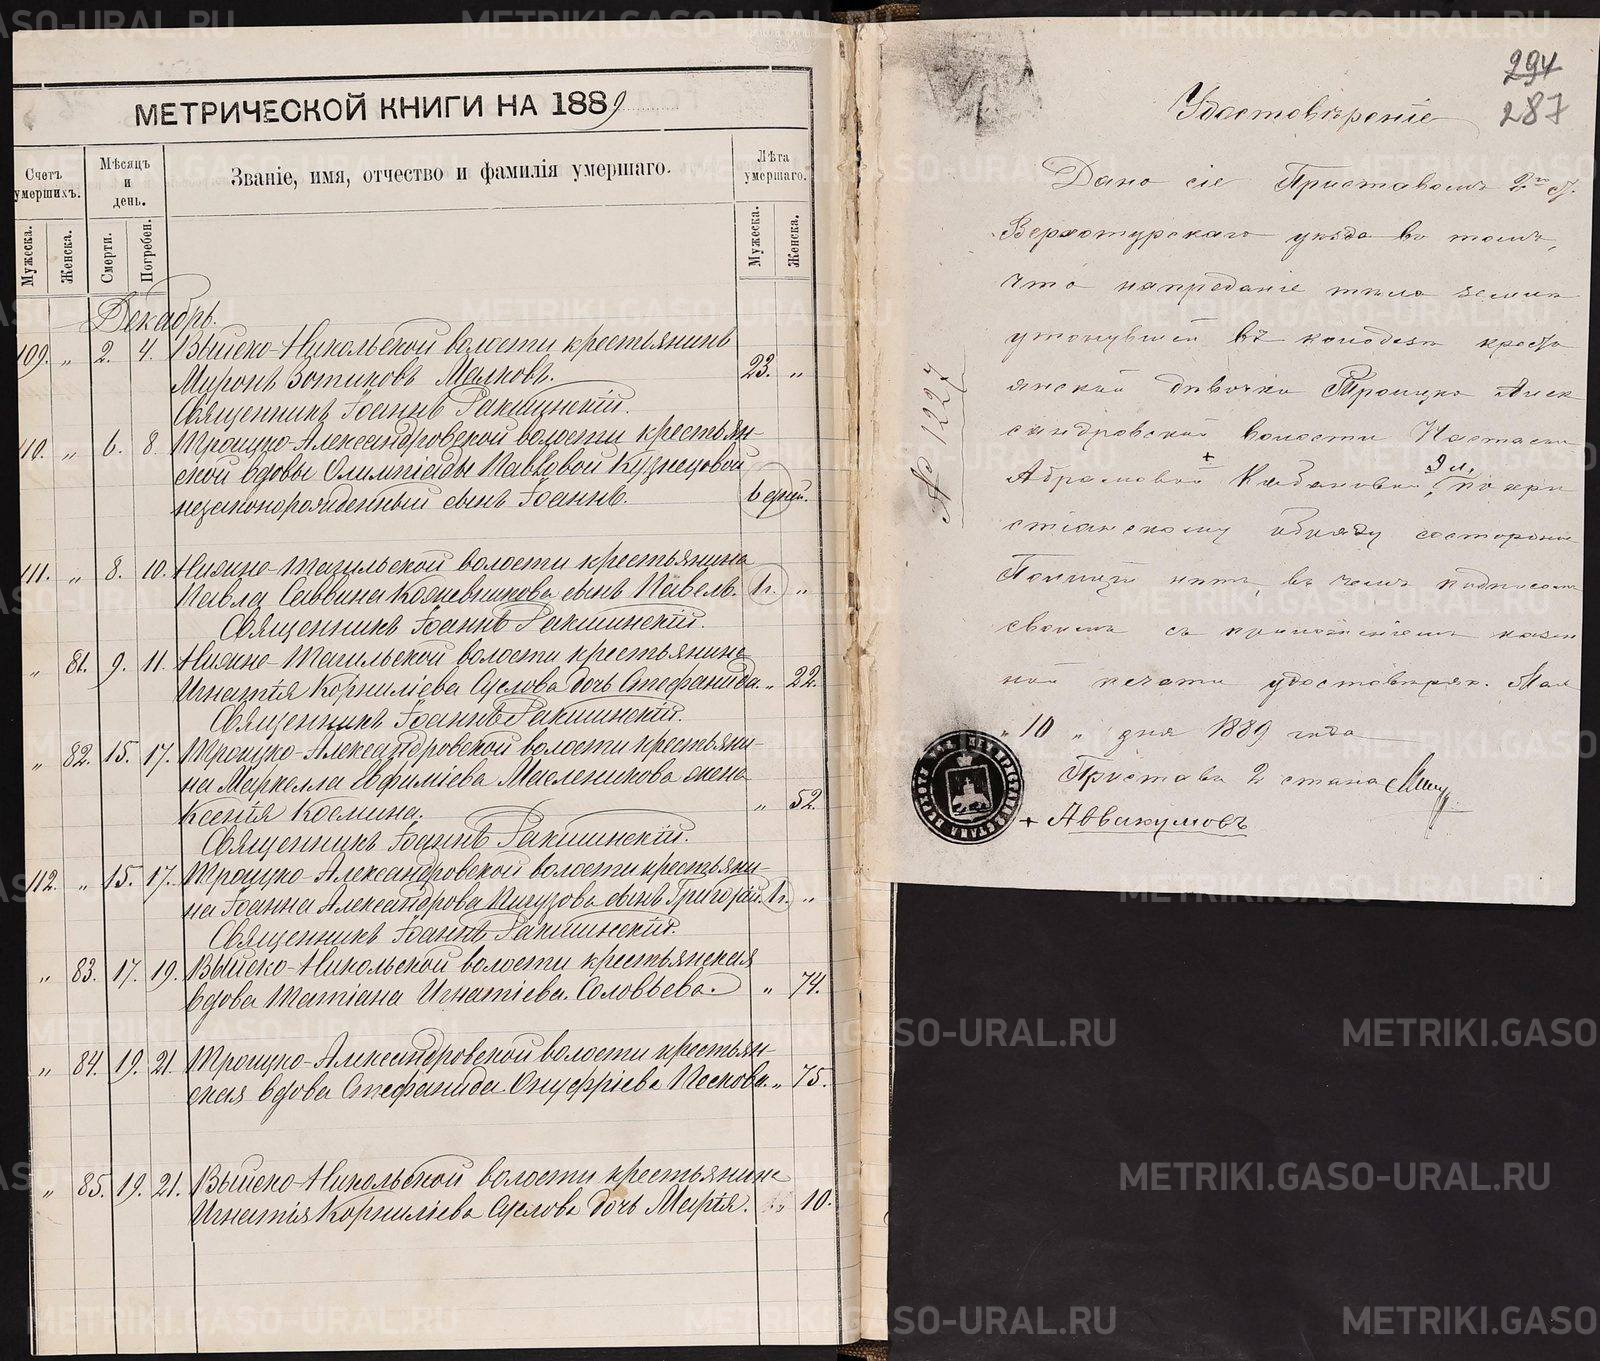 МЕТРИЧЕСКОЙ КНИГИ НА 1889
Счетъ умершихъ.
Мѣсяцъ и день.
Званіе, имя, отчество и фамилія умершаго.
Лѣта умершаго.
Мужеска.
Женска.
Смерти.
Погребен.
Мужеска.
Женска.
Декабрь.
109. „ 2. 4. Выйско-Никольской волости крестьянинъ
Миронъ Зотиковъ Малковъ. 23. „
Священникъ Іоаннъ Ракшинскій.
110. „ 6. 8. Троицко-Александровской волости крестьян-
ской вдовы Олимпіады Павловой Кузнецовой
незаконорожденный сынъ Іоаннъ. 6 дней.
111. „ 8. 10. Нижне-Тагильской волости крестьянина
Павла Саввина Кожевникова сынъ Павелъ. 1 г. „
Священникъ Іоаннъ Ракшинскій.
„ 81. 9. 11. Нижне-Тагильской волости крестьянина
Игнатія Корниліева Суслова дочь Стефанида. „ 22.
Священникъ Іоаннъ Ракшинскій.
„ 82. 15. 17. Троицко-Александровской волости крестьяни-
на Маркелла Евфиміева Масленикова жена
Ксенія Космина. „ 52.
Священникъ Іоаннъ Ракшинскій.
112. „ 15. 17. Троицко-Александровской волости крестьяни-
на Іоанна Александрова сынъ Григорій. 1 г. „
Священникъ Іоаннъ Ракшинскій.
„ 83. 17. 19. Выйско-Никольской волости крестьянская
вдова Татіана Игнатіева Соловьева. „ 74.
„ 84. 19. 21. Троицко-Александровской волости крестьян-
ская вдова Стефанида Онуфріева Пескова. „ 75.
„ 85. 19. 21. Выйско-Никольской волости крестьянина
Игнатія Корниліева Суслова дочь Марія. „ 10.
294
287
Удостовѣреніе
Дано сіе Приставомъ 2го ст.
Верхотурскаго уѣзда въ томъ,
что на преданіе тѣла землѣ
утонувшей въ колодезѣ кресть
янской дѣвочки Троицко Алек
сандровской волости Настасьи
Абрамовой + 9 л., по хри
стіанскому обряду со стороны
Полиціи нѣтъ, въ чемъ подписомъ
своимъ съ приложеніемъ казен
ной печати удостовѣряю. Мая
„10„ дня 1889 года
Пристава 2 стана
+ Аввакумовъ
№ 1227
METRIKI.GASO-URAL.RU